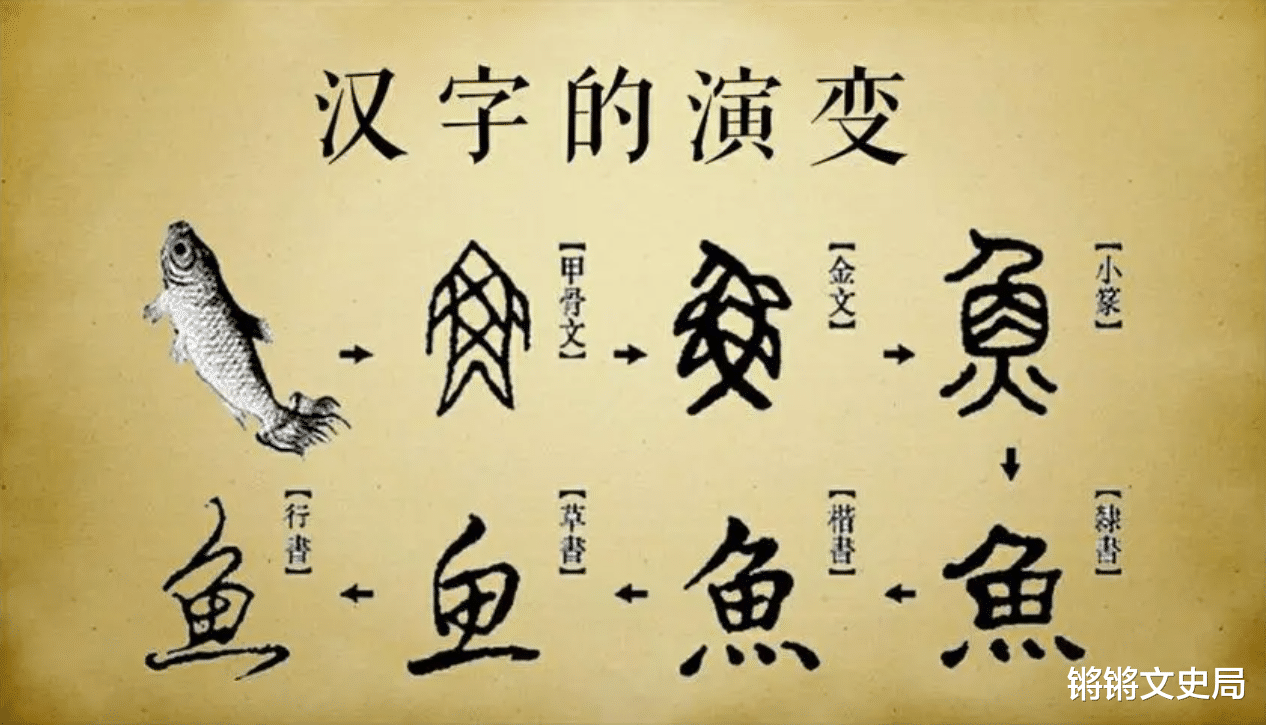 汉字的演变
【甲骨文】
【金文】
【小篆】
【隸書】
【楷書】
【草書】
【行書】
魚
魚
魚
魚
魚
鱼
鱼
锵锵文史局